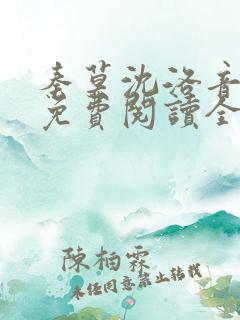 秦墓沈洛音
免費閱讀全
陳柏霖
未經同意禁止轉載